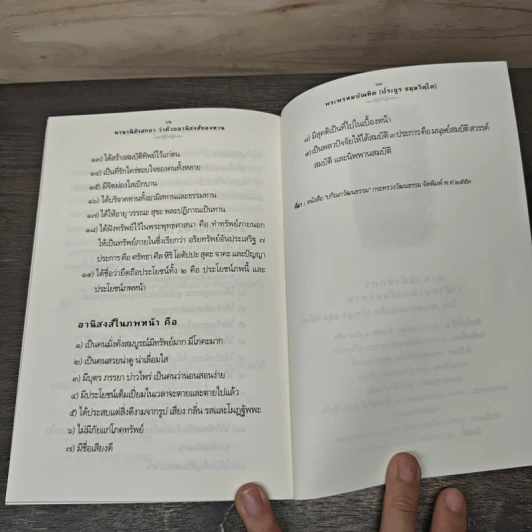 ทานานิสังสกถา ว่าด้วยอานิสงส์ของทาน
๑๓) ได้สร้างสมบัติทิพย์ไว้แก่ตน
๑๔) เป็นที่รักใคร่ชอบใจของคนทั้งหลาย
๑๕) มีจิตผ่องใสเบิกบาน
๑๖) ได้บริจาคทานทั้งอามิสทานและธรรมทาน
๑๗) ได้ให้อายุ วรรณะ สุขะ พละปฏิภาณเป็นทาน
๑๘) ได้ฝังทรัพย์ไว้ในพระพุทธศาสนา คือ ทำทรัพย์ภายนอก
ให้เป็นทรัพย์ภายในซึ่งเรียกว่า อริยทรัพย์อันประเสริฐ ๗
ประการ คือ ศรัทธา ศีล หิริ โอตัปปะ สุตะ จาคะ และปัญญา
๑๙) ได้ชื่อว่ายึดถือประโยชน์ทั้ง ๒ คือ ประโยชน์ภพนี้ และ
ประโยชน์ภพหน้า
อานิสงส์ในภพหน้า คือ
๑) เป็นคนมั่งคั่งสมบูรณ์มีทรัพย์มาก มีโภคะมาก
๒) เป็นคนสวยน่าดู น่าเลื่อมใส
๓) มีบุตร ภรรยา บ่าวไพร่ เป็นคนว่านอนสอนง่าย
๔) มีประโยชน์เต็มเปี่ยมในเวลาจะตายและตายไปแล้ว
๕) ได้ประสบแต่สิ่งดีงามจากรูป เสียง กลิ่น รสและโผฏฐัพพะ
๖) ไม่มีภัยแก่โภคทรัพย์
๗) มีชื่อเสียงดี
พระพรหมบัณฑิต (ประยูร ธมฺมจิตฺโต)
๘) มีสุคติเป็นที่ไปในเบื้องหน้า
๙) เป็นพลวปัจจัยให้ได้สมบัติ ๓ ประการ คือ มนุษย์สมบัติ สวรรค์
สมบัติ และนิพพานสมบัติ
ที่มา : หนังสือ "ปริณกวัฒนธรรม" กระทรวงวัฒนธรรม จัดพิมพ์ พ.ศ.๒๕๕๓